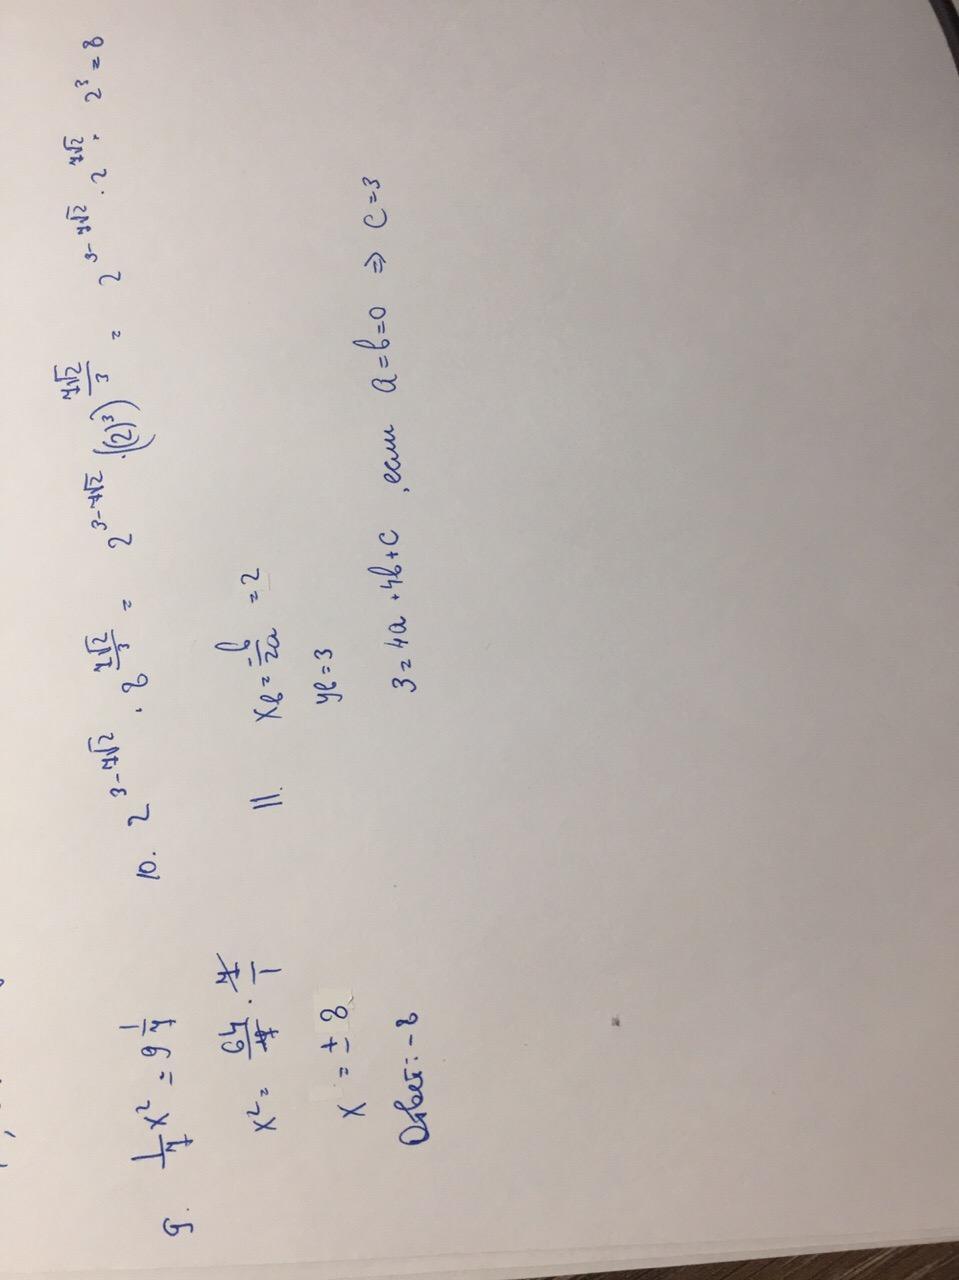 9. 1/7 x² = 9 1/7
x² = 64/7 · 7/1
x = ± 8
Ответ: -8
10. 2^(3-7√2) · 8^(7√2/3) = 2^(3-7√2) · ((2)³)^(7√2/3) = 2^(3-7√2) · 2^(7√2) = 2³ = 8
11. xв = -b/2a = 2
yв = 3
3 = 4a + 4b + c, если a = b = 0 ⇒ c = 3